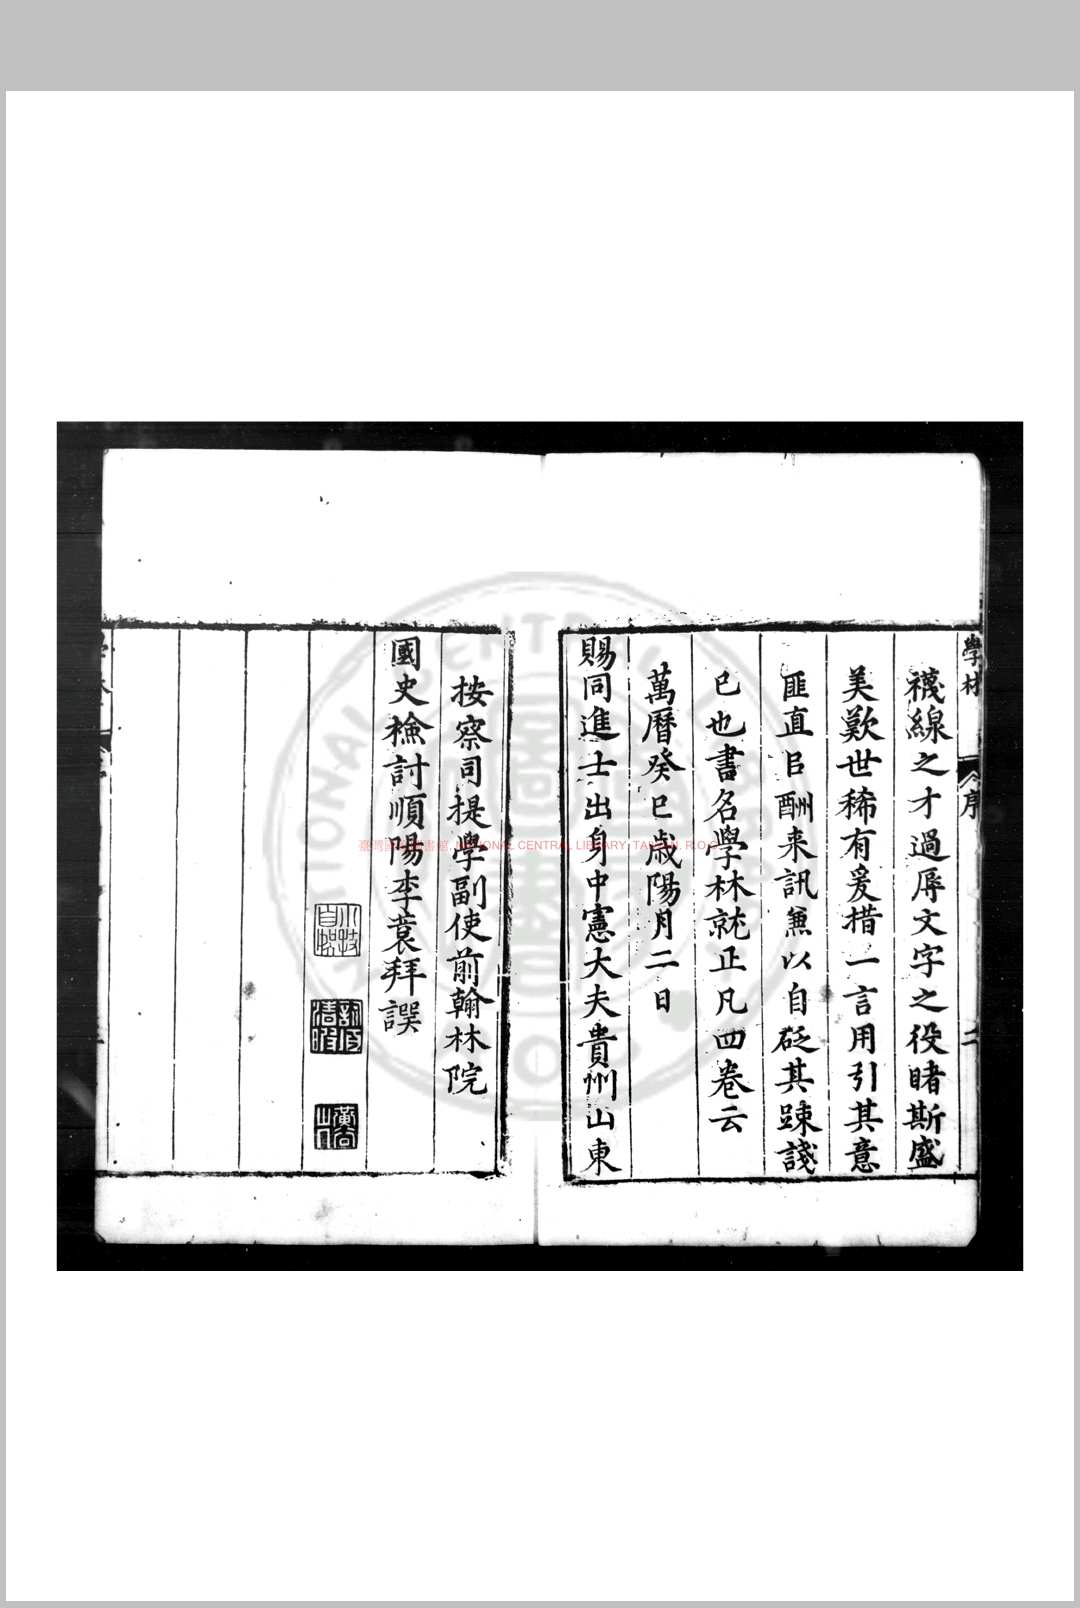 學林 序 二
襪線之才過辱文字之役睹斯盛
美歎世稀有爰措一言用引其意
匪直㠯酬来訊兼以自砭其踈諓
已也書名學林就正凡四卷云
萬曆癸巳歲陽月二日
賜同進士出身中憲大夫貴州山東
按察司提學副使前翰林院
國史檢討順陽李蓘拜譔
臺灣國家圖書館, NATIONAL CENTRAL LIBRARY, TAIWAN, R.O.C